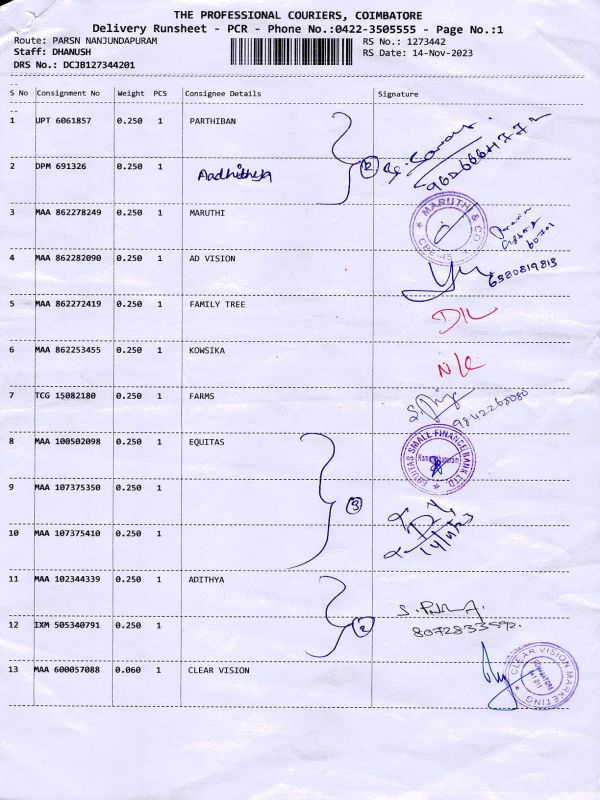 THE PROFESSIONAL COURIERS, COIMBATORE
Delivery Runsheet - PCR - Phone No.:0422-3505555 - Page No.:1
Route: PARSN NANJUNDAPURAM RS No.: 1273442
Staff: DHANUSH RS Date: 14-Nov-2023
DRS No.: DCJB127344201
S No Consignment No Weight PCS Consignee Details Signature
1 UPT 6061857 0.250 1 PARTHIBAN
2 DPM 691326 0.250 1 Aadhithya 2
3 MAA 862278249 0.250 1 MARUTHI MARUTHI & CO
4 MAA 862282090 0.250 1 AD VISION 6380819813
5 MAA 862272419 0.250 1 FAMILY TREE D/L
6 MAA 862253455 0.250 1 KOWSIKA N/C
7 TCG 15082180 0.250 1 FARMS 9842268080
8 MAA 100502098 0.250 1 EQUITAS EQUITAS SMALL FINANCE BANK LTD.
9 MAA 107375350 0.250 1 3
10 MAA 107375410 0.250 1 14/11/23
11 MAA 102344339 0.250 1 ADITHYA
12 IXM 505340791 0.250 1 2 8072833592.
13 MAA 600057088 0.060 1 CLEAR VISION CLEAR VISION MARKETING